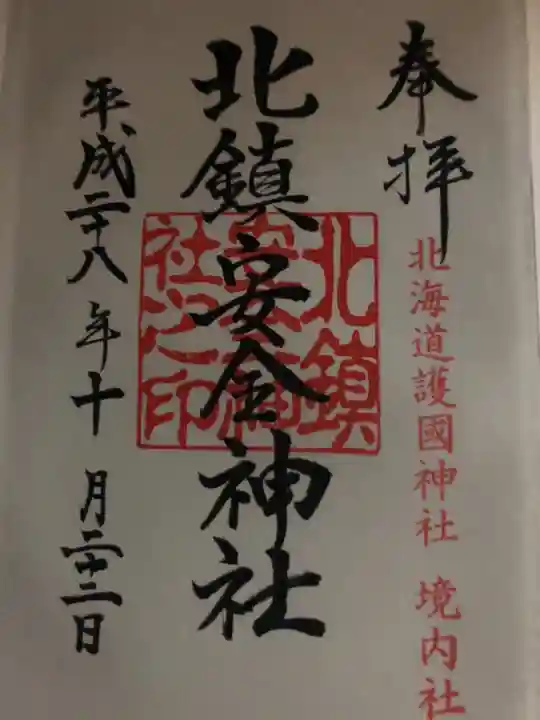 奉拝
北海道護國神社 境内社
北鎮安全神社
北鎮
社之印
平成二十八年十月二十二日